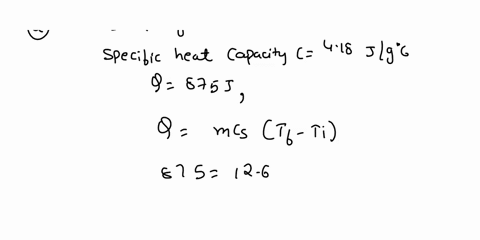 Specific heat capacity C= 4.18 J/g°C
Q= 875J,
Q = mCs (Tf-Ti)
875= 12.6